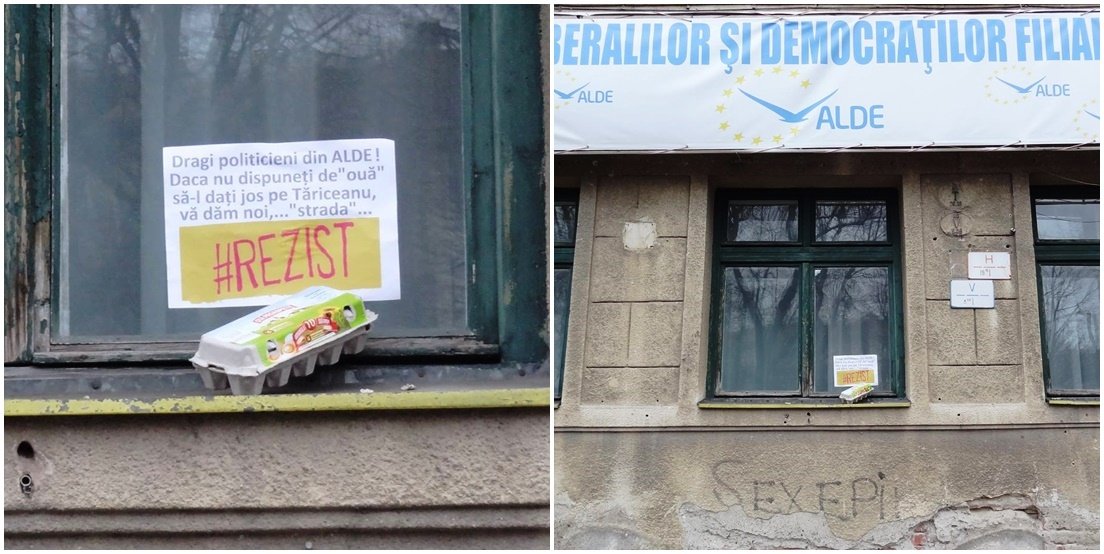 Dragi politicieni din ALDE!
Daca nu dispuneți de"ouă"
să-l dați jos pe Tăriceanu,
vă dăm noi,..."strada"...
#REZIST
BERALILOR ŞI DEMOCRAŢILOR FILIA
ALDE
ALDE
ALDE
H
V
#REZIST
SEXEPIL